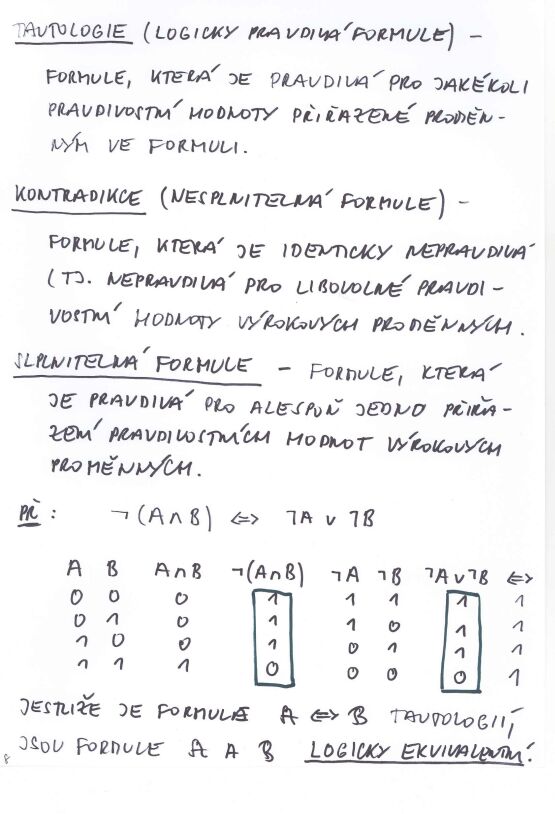 TAUTOLOGIE (LOGICKY PRAVDIVÁ FORMULE) –
FORMULE, KTERÁ JE PRAVDIVÁ PRO JAKÉKOLI
PRAVDIVOSTNÍ HODNOTY PŘIŘAZENÉ PROMĚN-
NÝM VE FORMULI.
KONTRADIKCE (NESPLNITELNÁ FORMULE) –
FORMULE, KTERÁ JE IDENTICKY NEPRAVDIVÁ
(TJ. NEPRAVDIVÁ PRO LIBOVOLNÉ PRAVDI-
VOSTNÍ HODNOTY VÝROKOVÝCH PROMĚNNÝCH.
SLPLNITELNÁ FORMULE – FORMULE, KTERÁ
JE PRAVDIVÁ PRO ALESPOŇ JEDNO PŘIŘA-
ZENÍ PRAVDIVOSTNÍCH HODNOT VÝROKOVÝCH
PROMĚNNÝCH.
PŘ: ¬(A∧B) ⇔ ¬A ∨ ¬B
A B A∧B ¬(A∧B) ¬A ¬B ¬A∨¬B ⇔
0 0 0 1 1 1 1 1
0 1 0 1 1 0 1 1
1 0 0 1 0 1 1 1
1 1 1 0 0 0 0 1
JESTLIŽE JE FORMULE A ⇔ B TAUTOLOGIÍ,
JSOU FORMULE A A B LOGICKY EKVIVALENTNÍ.
8